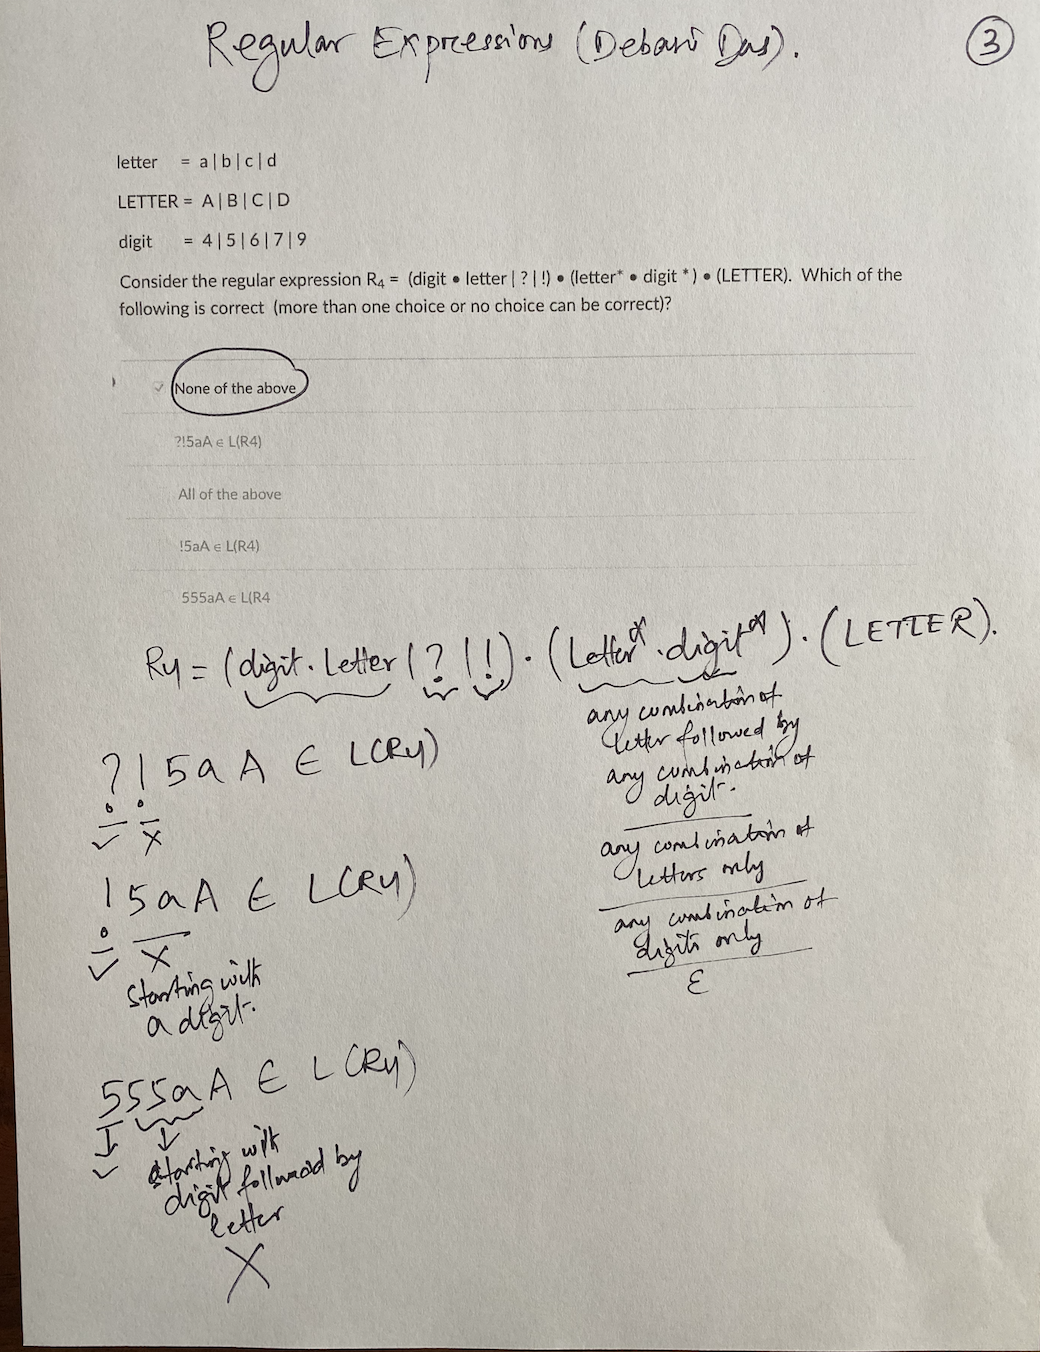 Regular Expressions (Debasri Das). 3
letter = a|b|c|d
LETTER = A|B|C|D
digit = 4|5|6|7|9
Consider the regular expression R4 = (digit • letter | ? | !) • (letter* • digit *) • (LETTER). Which of the
following is correct (more than one choice or no choice can be correct)?
None of the above
?!5aA ∈ L(R4)
All of the above
!5aA ∈ L(R4)
555aA ∈ L(R4
R4 = (digit. Letter | ? | !) . (Letter* .digit*) . (LETTER).
any combination of
letter followed by
any combination of
digit.
any combination of
letters only
any combination of
digits only
ε
?!5aA ∈ L(R4)
!5aA ∈ L(R4)
X
Starting with
a digit.
555aA ∈ L(R4)
starting with
digit followed by
letter
X